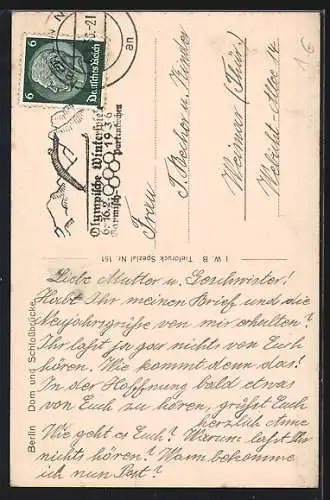 6 Deutsches Reich 6
Olympische Winterspiele
6.-16.2. 1936
Garmisch-
Partenkirchen
Frau
J. Becher u. Kinder
Weimar (Thür.)
I W B Tiefdruck Spezial Nr. 151
Berlin Dom und Schloßbrücke
Liebe Mutter u. Geschwister!
Habt Ihr meinen Brief und die
Neujahrsgrüße von mir erhalten?
Ihr laßt ja gar nichts von Euch
hören. Wie kommt denn das!
In der Hoffnung bald etwas
von Euch zu hören, grüßt Euch
herzlich Anne
Wie geht es Euch? Warum laßt Ihr
nichts hören? Wann bekomme
ich nun Post?